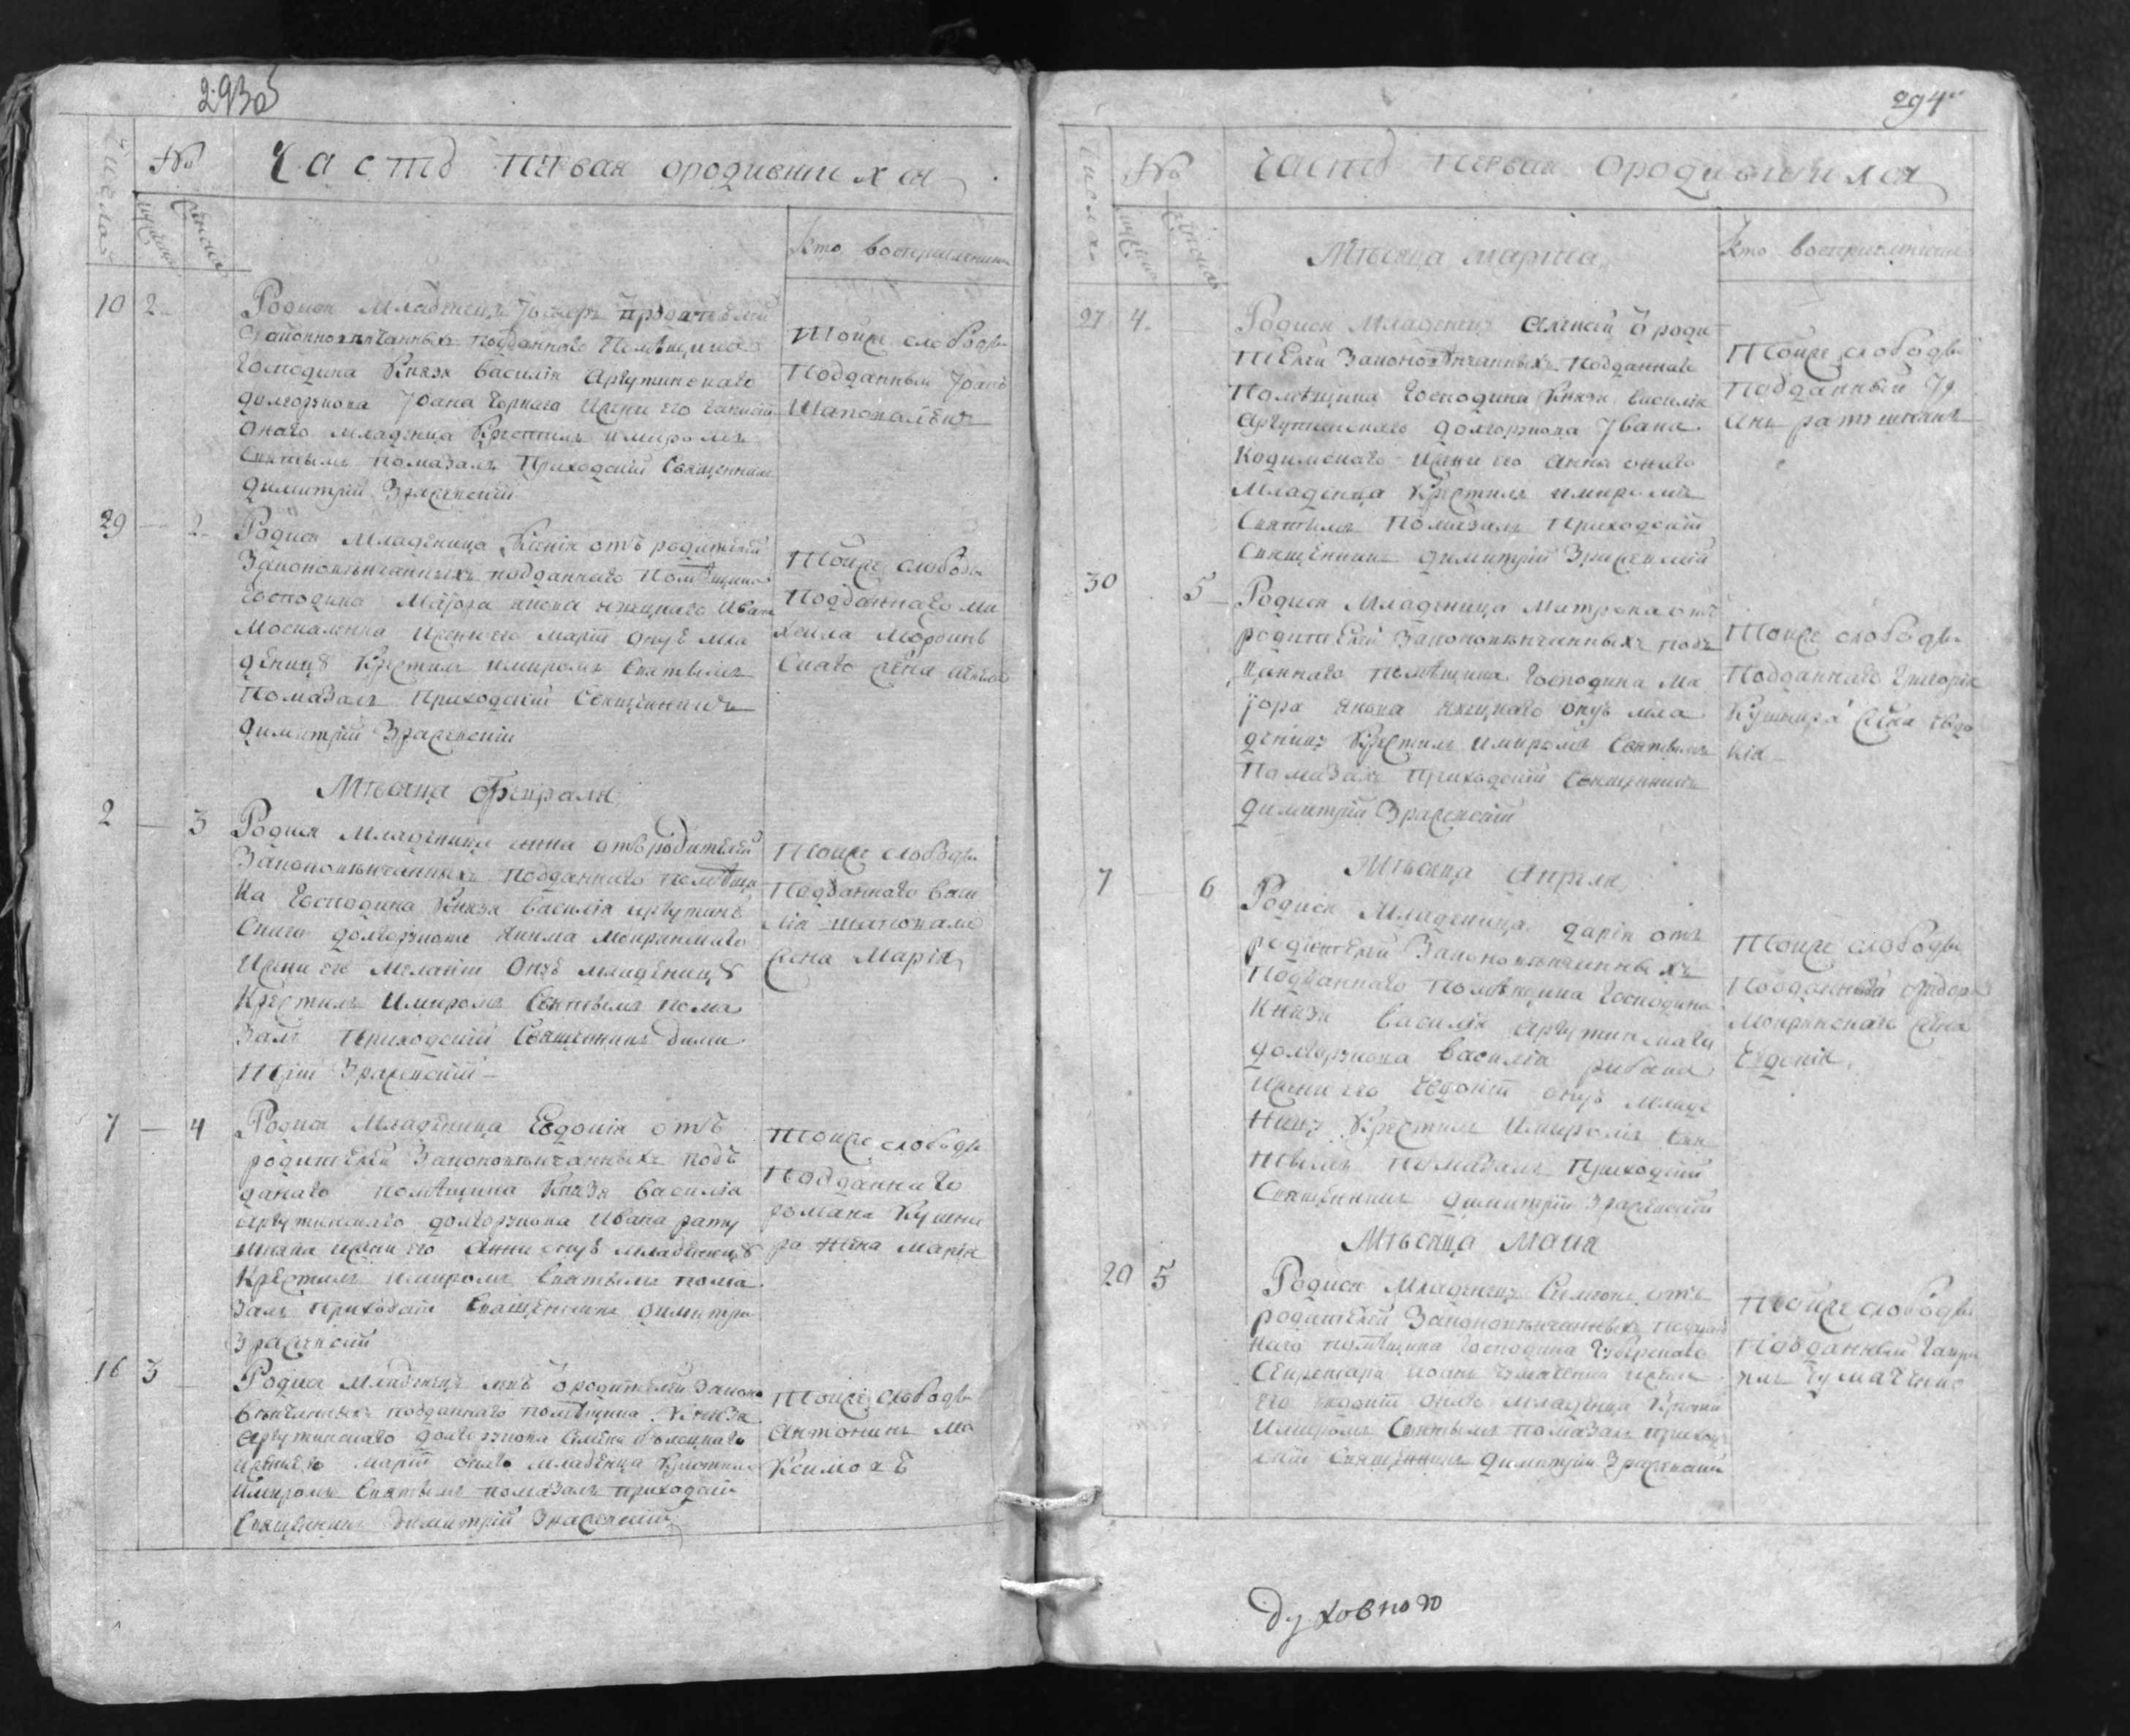 293об
Числа
№
Часть первая о родившихся
мужеска
женска
Кто восприемники
10 2
Родися младенецъ Іосифъ родителей
законновѣнчанныхъ подданнаго помѣщика
господина Князя Василія Аргутинскаго
долгорукова Іоана Чорнаго жени его
онаго младенца крестилъ имиромъ
святымъ помазалъ приходскій священникъ
Димитрій Зражевскій
Тойже слободы
подданный Іоанъ
Шаповаленъ
29 — 2
Родися младеница Ксенія отъ родителей
законновѣнчанныхъ подданнаго помѣщика
господина Маіора Ивана
Москаленка жени его Марѳи онуе мла
деницу крестилъ имиромъ святымъ
помазалъ приходскій священникъ
Димитрій Зражевскій
Тойже слободы
подданнаго ми
хаила
скаго жена
Мѣсяца Февраля
2 — 3
Родися младеница Анна отъ родителей
законновѣнчанныхъ подданнаго помѣщи
ка господина Князя Василія Аргутин
скаго долгорукова Якима Мокрянскаго
жени его Меланіи онуе младеницу
крестилъ имиромъ святымъ пома
залъ приходскій священникъ Дими
трій Зражевскій
Тойже слободы
подданнаго Васи
лія шаповала
жена Марія
7 — 4
Родися младеница Евдокія отъ
родителей законновѣнчанныхъ под
данаго помѣщика Князя Василія
Аргутинскаго долгорукова Ивана рату
шняка жени его Анни онуе младеницу
крестилъ имиромъ святымъ пома
залъ приходскій священникъ Димитрій
Зражевскій
Тойже слободы
подданнаго
романа Кушни
ра жена Марія
16 3
Родися младенецъ левъ о родителей законо
вѣнчанныхъ подданнаго помѣщика Князя
Аргутинскаго долгорукова Семена
жени его Марѳи онаго младенца крестилъ
имиромъ святымъ помазалъ приходскій
священникъ Димитрій Зражевскій
Тойже слободы
Антонинъ Ма
ксимохъ
294
Числа
№
Часть первая о родившихся
мужеска
женска
Мѣсяца марта
Кто восприемники
27 4
Родися младенецъ Алексій о роди
телей законовѣнчанныхъ подданнаго
помѣщика господина Князя Василія
Аргутинскаго долгорукова Ивана
Кодимскаго жени его Анны онаго
младенца крестилъ имиромъ
святымъ помазалъ приходскій
священникъ Димитрій Зражевскій
Тойже слободы
подданный Ів
анъ ратушнякъ
30 5
Родися младеница Матрона отъ
родителей законновѣнчанныхъ под
даннаго помѣщика господина ма
іора онуе мла
деницу крестилъ имиромъ святымъ
помазалъ приходскій священникъ
Димитрій Зражевскій
Тойже слободы
подданнаго Григорія
Кушнира жена Евдо
кія
Мѣсяца Апреля
7 — 6
Родися младеница Дарія отъ
родителей законновѣнчанныхъ
подданнаго помѣщика господина
Князя Василія Аргутинскаго
долгорукова Василія рибака
жени его Евдокіи онуе младе
ницу крестилъ имиромъ свя
тымъ помазалъ приходскій
священникъ Димитрій Зражевскій
Тойже слободы
подданнаго Федора
Мокрянскаго жена
Евдокія
Мѣсяца Маия
20 5
Родися младенецъ Симеонъ отъ
родителей законновѣнчанныхъ поддан
наго помѣщика господина Губернскаго
Секретаря жени
его Евдокіи онаго младенца крестилъ
имиромъ святымъ помазалъ приход
скій священникъ Димитрій Зражевскій
Тойже слободы
подданный Гаври
илъ Чумаченко
духовного